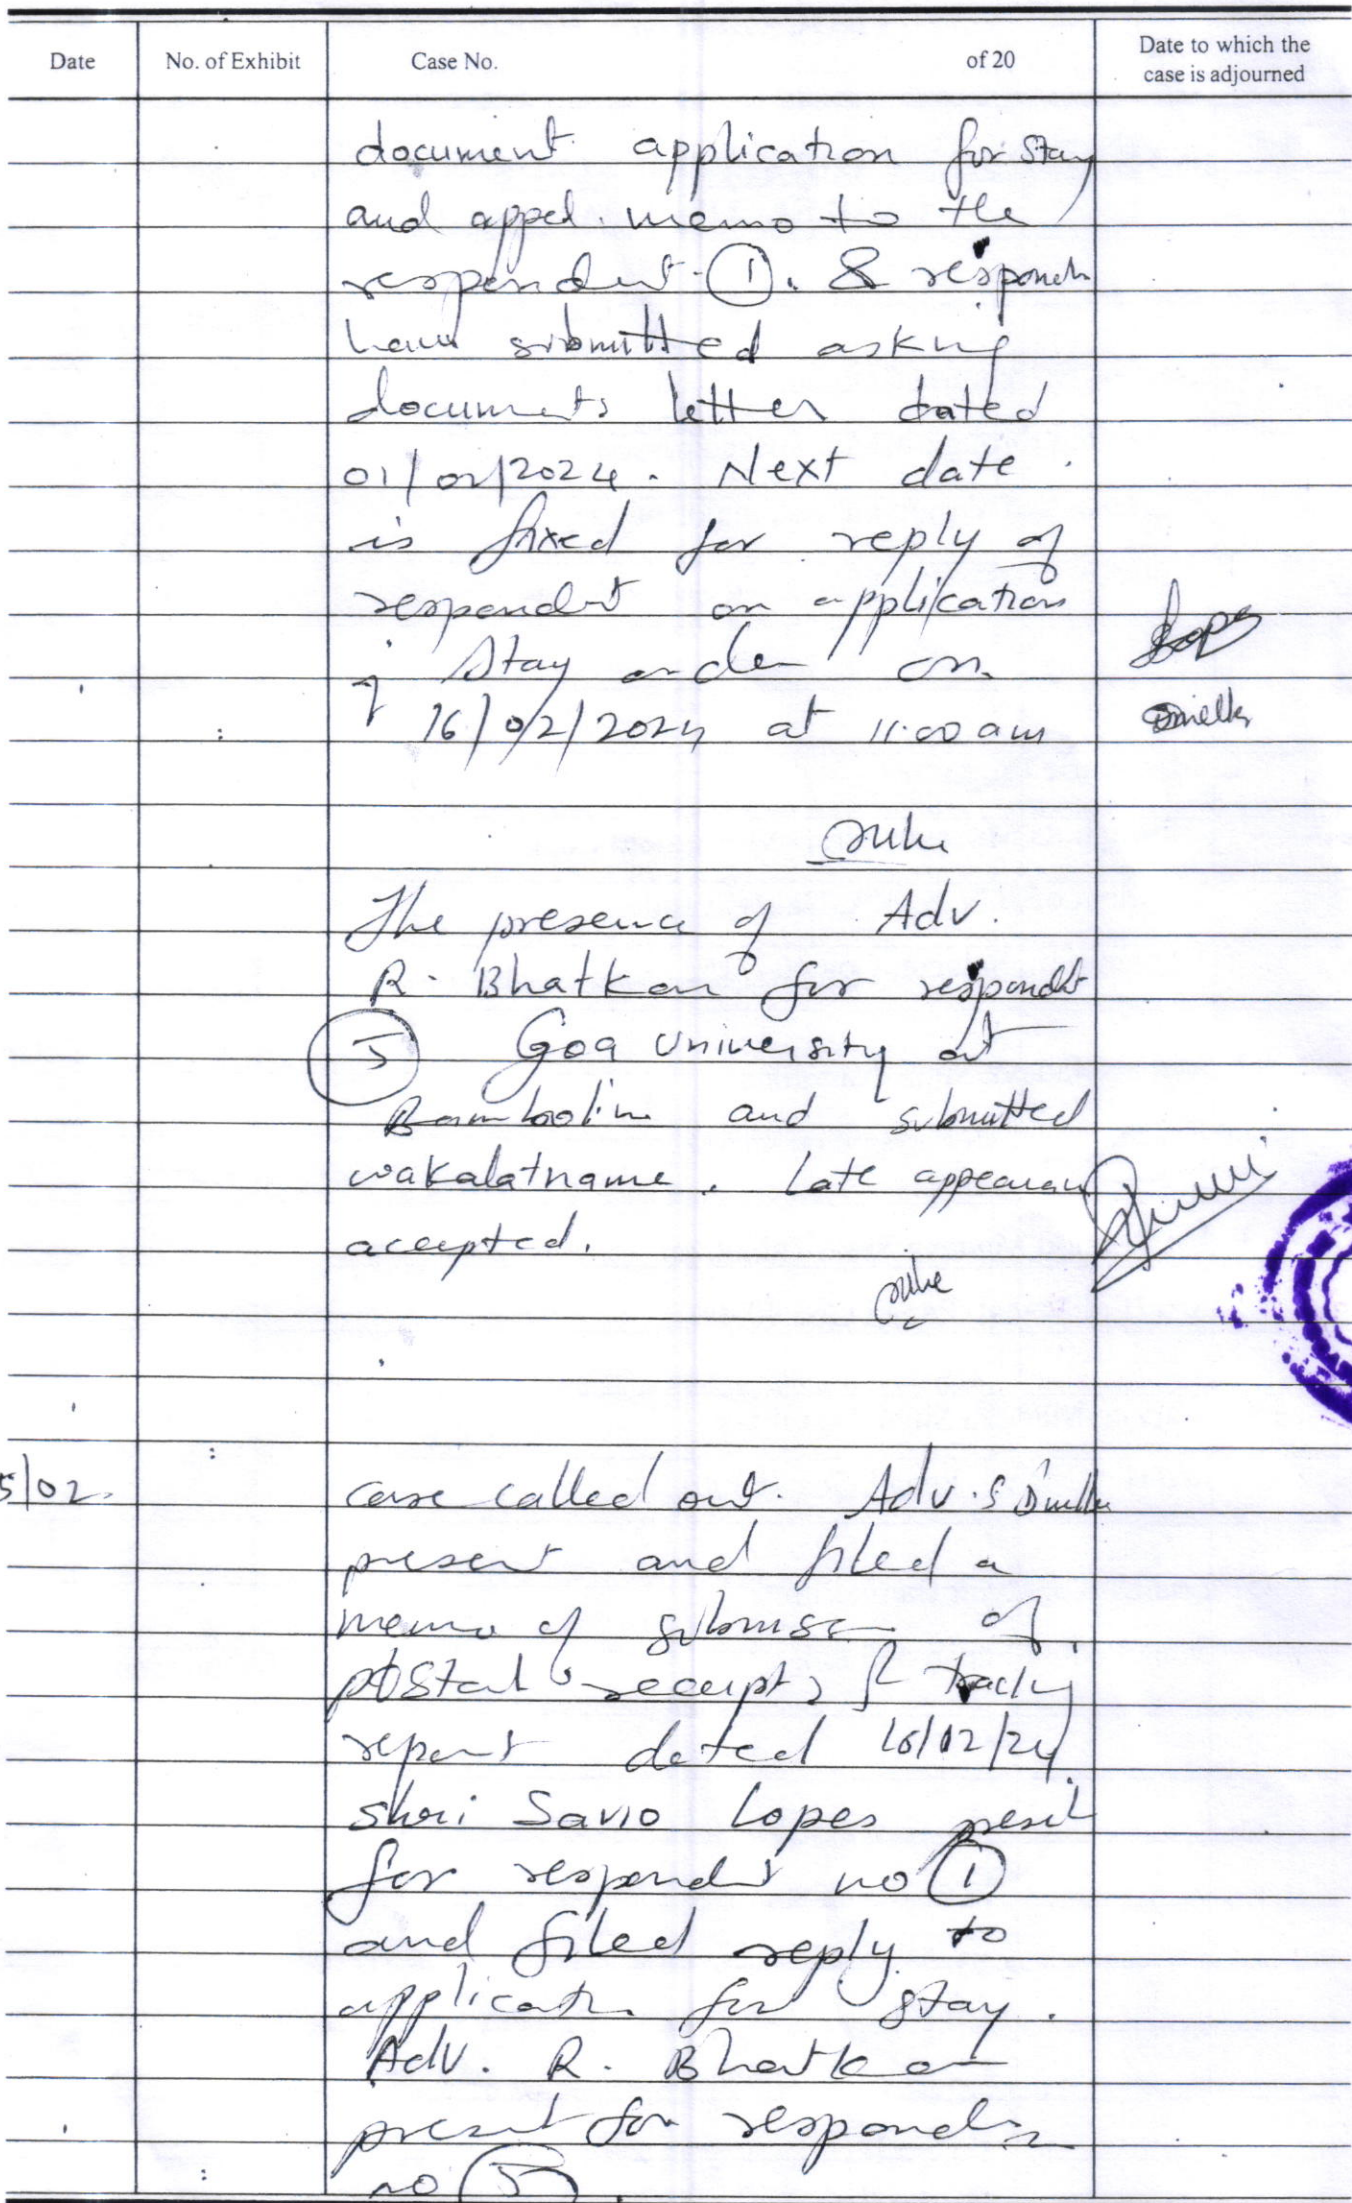 Date No. of Exhibit Case No. of 20 Date to which the case is adjourned
document application for stay
and appeal memo to the
respondent (1). & respondent
have submitted asking
documents letter dated
01/02/2024. Next date
is fixed for reply of
respondent on application
of stay order on
16/02/2024 at 11.00 am
The presence of Adv.
R. Bhatkar for respondent
(5) Goa University at
Bambolim and submitted
wakalatnama. Late appearance
accepted.
5/02 case called out. Adv. S
present and filed a
memo of submission of
postal receipts & tracking
report dated 16/02/24
Shri Savio Lopes present
for respondent no (1)
and filed reply to
application for stay.
Adv. R. Bhatkar
present for respondent
no (5)